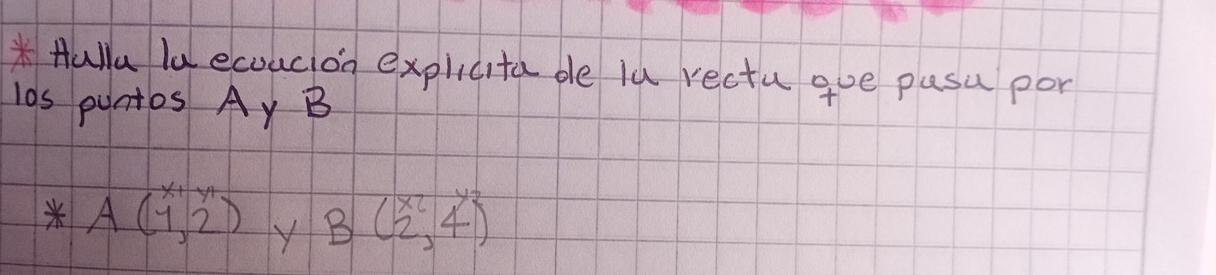 * Halla la ecuación explicita de la recta que pasa por
los puntos A y B
x1 y1 x2 y2
* A (1,2) y B (2,4)